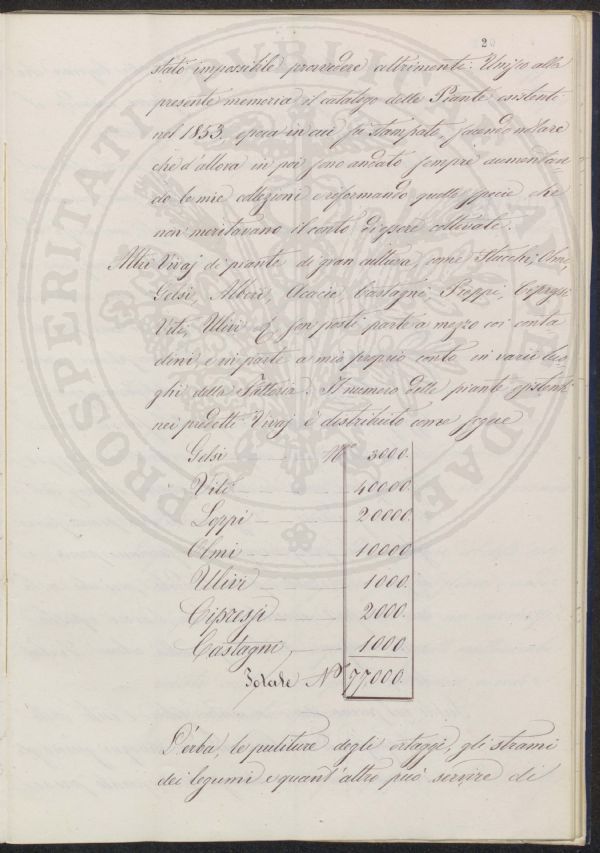 20
stato impossibile provvedere altrimenti. Unisco alla
presente memoria il catalogo delle Piante esistenti
nel 1853. epoca in cui fu stampato, facendo notare
che d'allora in poi sono andato sempre aumentan
do le mie collezioni e riformando quelle specie che
non meritavano il conto di essere coltivate.
Altri Vivaj di piante di gran cultura, come Stucchi, Olmi,
Gelsi, Alberi, Acacie, Castagni, Pioppi, Cipressi
Viti, Ulivi &. son posti parte a mezzo coi conta
dini, e in parte a mio proprio conto in varii luo
ghi della Fattoria. Il numero delle piante esistenti
nei predetti Vivaj è distribuito come segue
Gelsi N° 3000.
Viti 40000.
Loppi 20000.
Olmi 10000
Ulivi 1000.
Cipressi 2000.
Castagni 1000.
Totale N° 77000.
L'erba, le puliture degli ortaggi, gli strami
dei legumi e quant'altro può servire di
PROSPERITATI PUBLICAE AUGENDAE